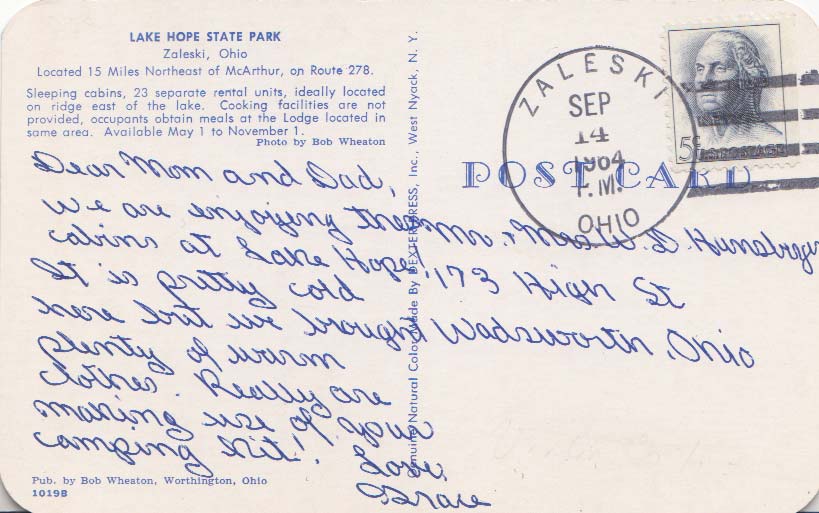 LAKE HOPE STATE PARK
Zaleski, Ohio
Located 15 Miles Northeast of McArthur, on Route 278.
Sleeping cabins, 23 separate rental units, ideally located
on ridge east of the lake. Cooking facilities are not
provided, occupants obtain meals at the Lodge located in
same area. Available May 1 to November 1.
Photo by Bob Wheaton
Dear Mom and Dad,
We are enjoying the
cabins at Lake Hope!
It is pretty cold
here but we brought
plenty of warm
clothes. Really are
making use of your
camping kit!
Love,
Grace
Pub. by Bob Wheaton, Worthington, Ohio
1019B
Genuine Natural Color Made By DEXTER PRESS, Inc., West Nyack, N. Y.
POST CARD
ZALESKI
SEP
14
1964
P.M.
OHIO
5¢
Mr. + Mrs. W. D. Hunsberger
173 High St
Wadsworth, Ohio